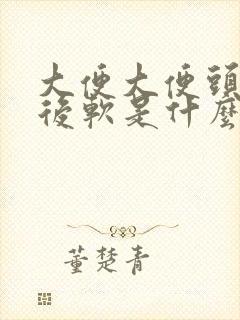 大便大便頭
後軟是什麼
董楚青